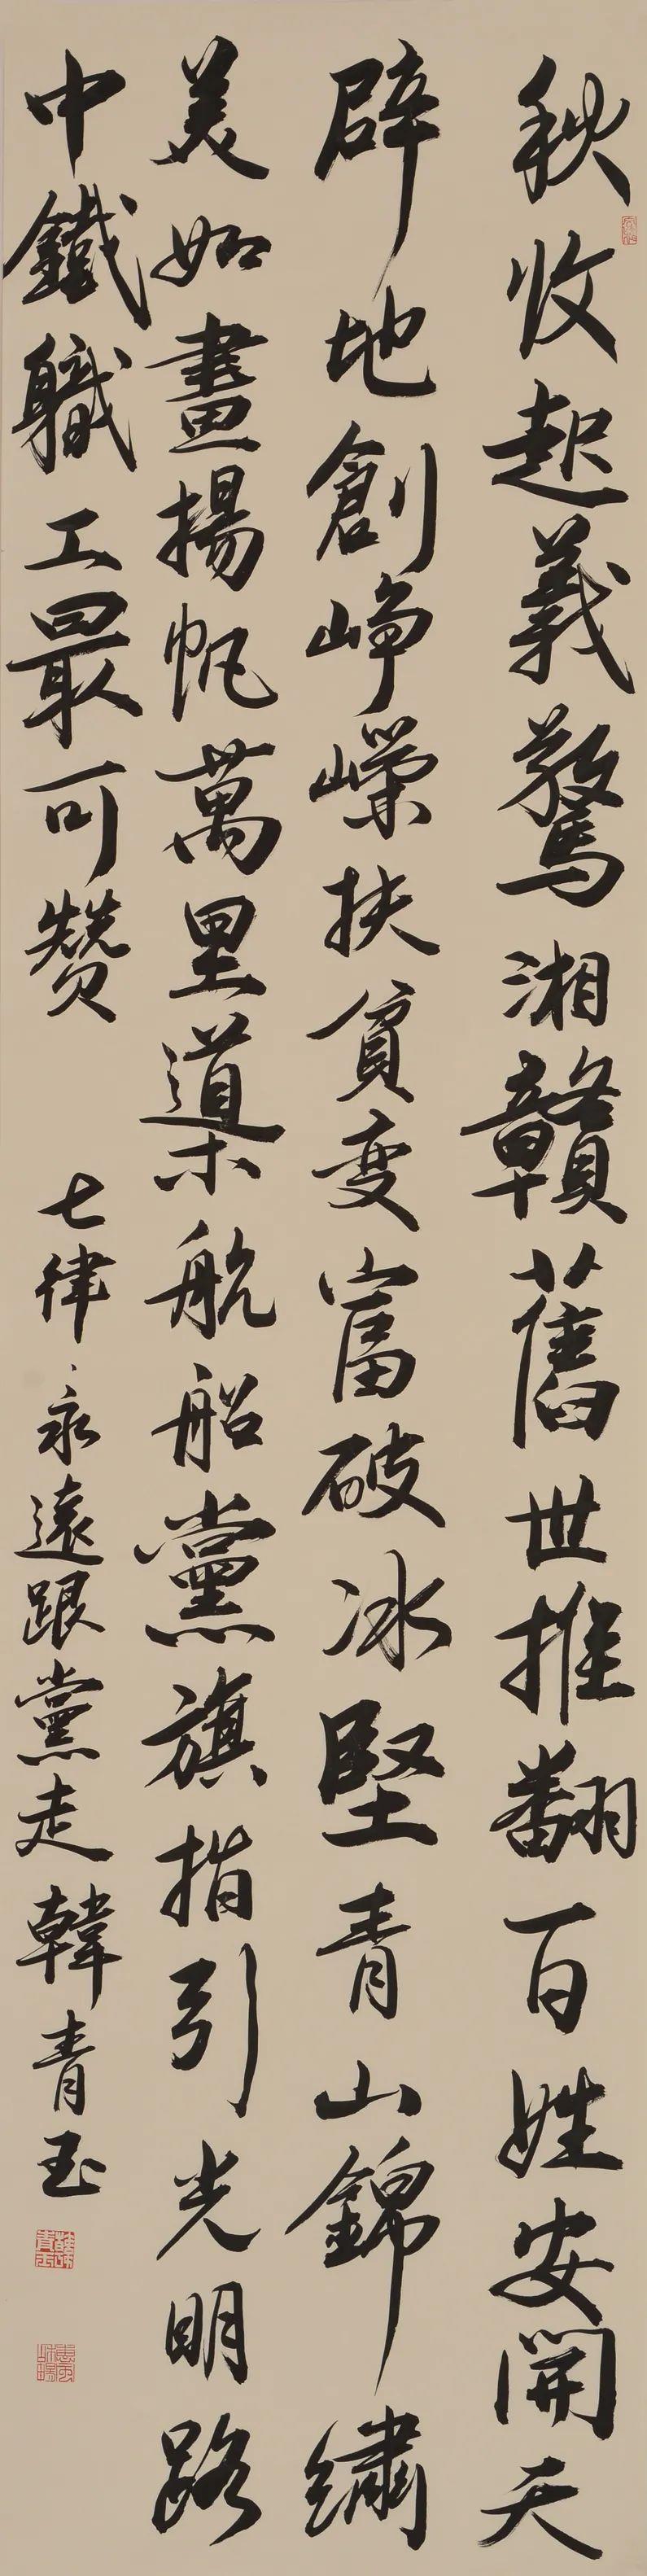 秋收起義驚湘贛舊世推翻百姓安開天
辟地創崢嶸扶貧变富破冰堅青山錦繡
美如畫揚帆萬里道渠航船黨旗指引光明路
中鐵職工最可赞
七律、永遠跟黨走韓青玉